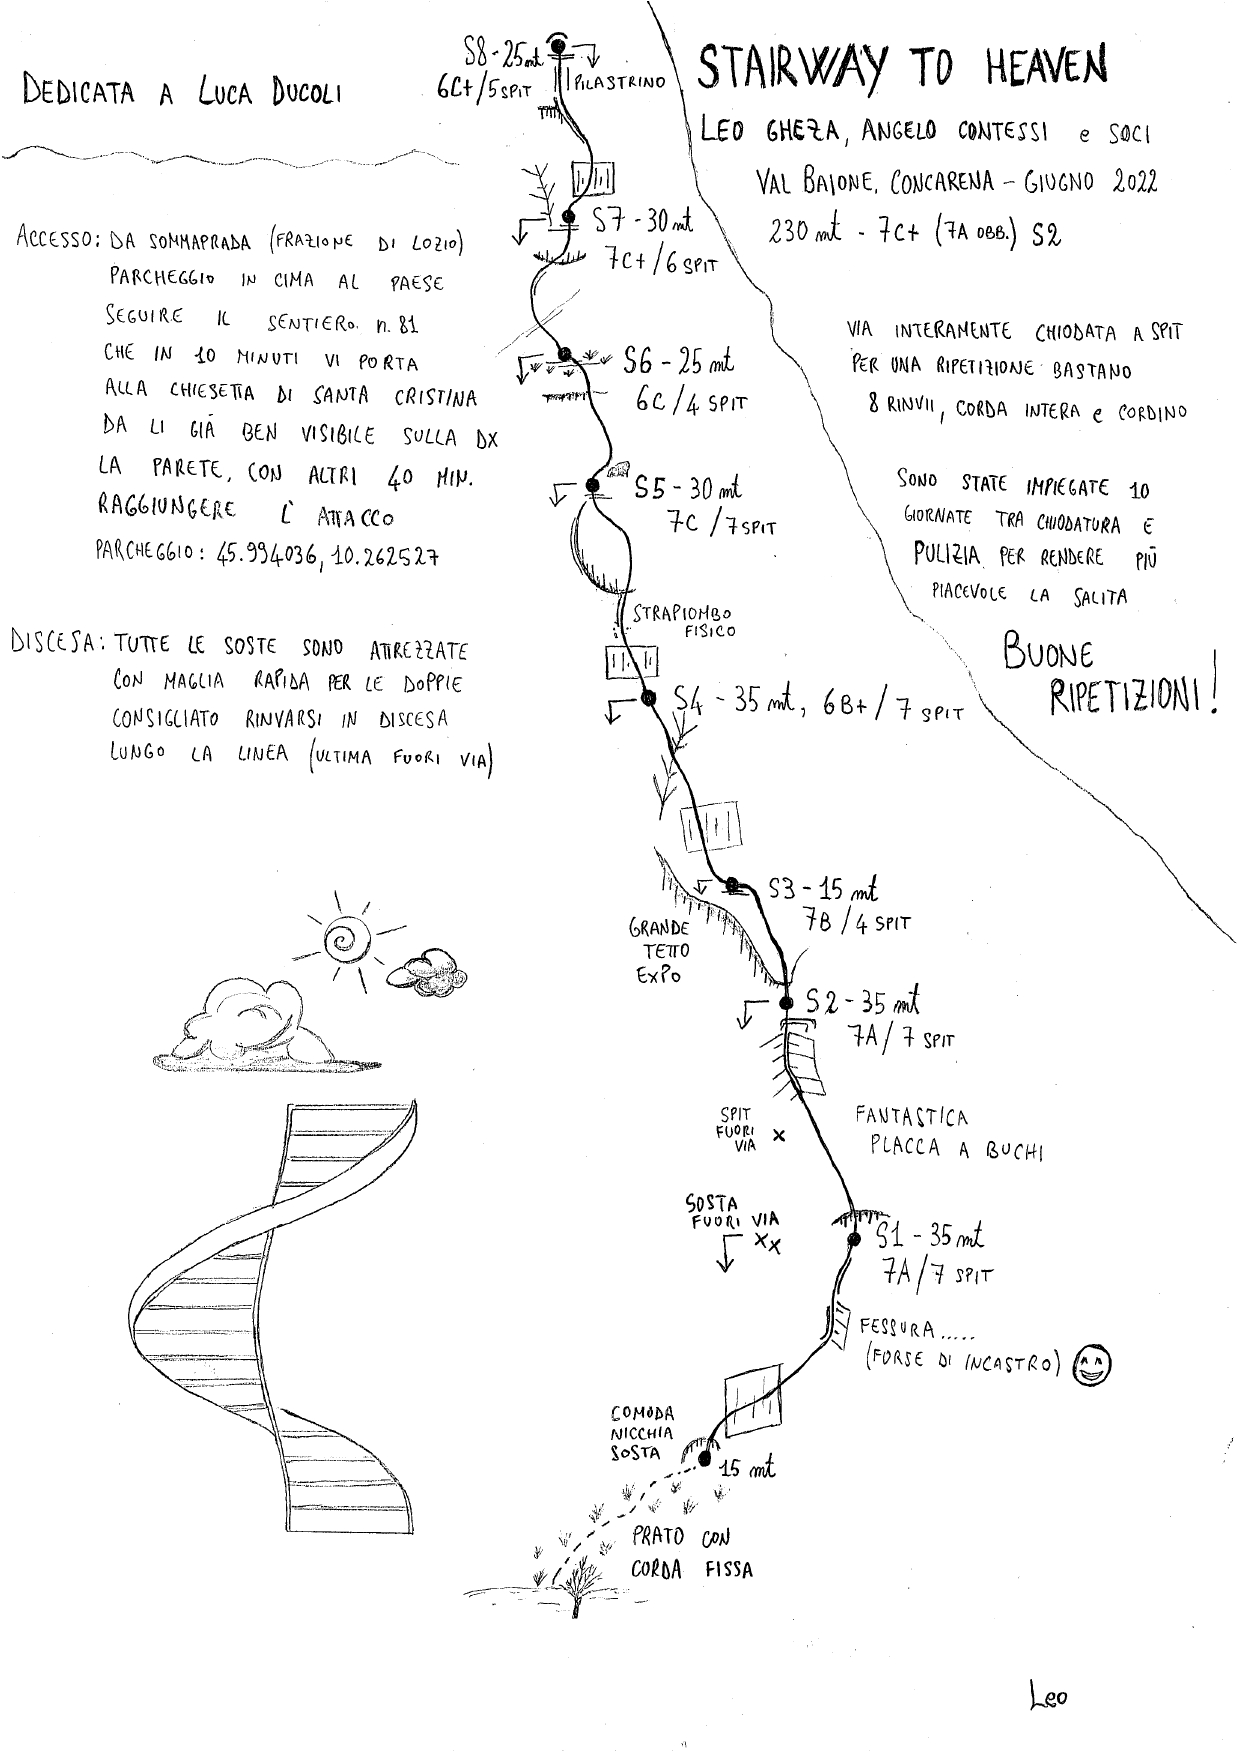 STAIRWAY TO HEAVEN
LEO GHEZA, ANGELO CONTESSI e SOCI
VAL BAIONE, CONCARENA - GIUGNO 2022
230 mt - 7C+ (7A OBB.) S2
VIA INTERAMENTE CHIODATA A SPIT
PER UNA RIPETIZIONE BASTANO
8 RINVII, CORDA INTERA e CORDINO
SONO STATE IMPIEGATE 10
GIORNATE TRA CHIODATURA E
PULIZIA PER RENDERE PIÙ
PIACEVOLE LA SALITA
BUONE
RIPETIZIONI!
DEDICATA A LUCA DUCOLI
ACCESSO: DA SOMMAPRADA (FRAZIONE DI LOZIO)
PARCHEGGIO IN CIMA AL PAESE
SEGUIRE IL SENTIERO. n. 81
CHE IN 10 MINUTI VI PORTA
ALLA CHIESETTA DI SANTA CRISTINA
DA LI GIÁ BEN VISIBILE SULLA DX
LA PARETE, CON ALTRI 40 MIN.
RAGGIUNGERE L'ATTACCO
PARCHEGGIO: 45.994036, 10.262527
DISCESA: TUTTE LE SOSTE SONO ATTREZZATE
CON MAGLIA RAPIDA PER LE DOPPIE
CONSIGLIATO RINVARSI IN DISCESA
LUNGO LA LINEA (ULTIMA FUORI VIA)
S8 - 25 mt
6C+/5 SPIT
PILASTRINO
S7 - 30 mt
7C+/6 SPIT
S6 - 25 mt
6C/4 SPIT
S5 - 30 mt
7C/7 SPIT
STRAPIOMBO
FISICO
S4 - 35 mt, 6B+/7 SPIT
S3 - 15 mt
7B/4 SPIT
GRANDE
TETTO
EXPO
S2 - 35 mt
7A/7 SPIT
SPIT
FUORI
VIA
FANTASTICA
PLACCA A BUCHI
SOSTA
FUORI VIA
S1 - 35 mt
7A/7 SPIT
FESSURA.....
(FORSE DI INCASTRO)
COMODA
NICCHIA
SOSTA
15 mt
PRATO CON
CORDA FISSA
Leo